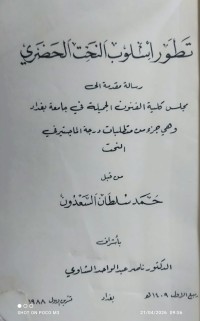 تطور اسلوب النحت الحضري
رسالة مقدمة الى
مجلس كلية الفنون الجميلة في جامعة بغداد
وهي جزء من متطلبات درجة الماجستير في
النحت
من قبل
حمد سلطان السعدون
بأشراف
الدكتور ناصر عبد الواحد الشاوي
ربيع الاول ١٤٠٩هـ بغداد تشرين اول ١٩٨٨
SHOT ON POCO F3
21/04/2024